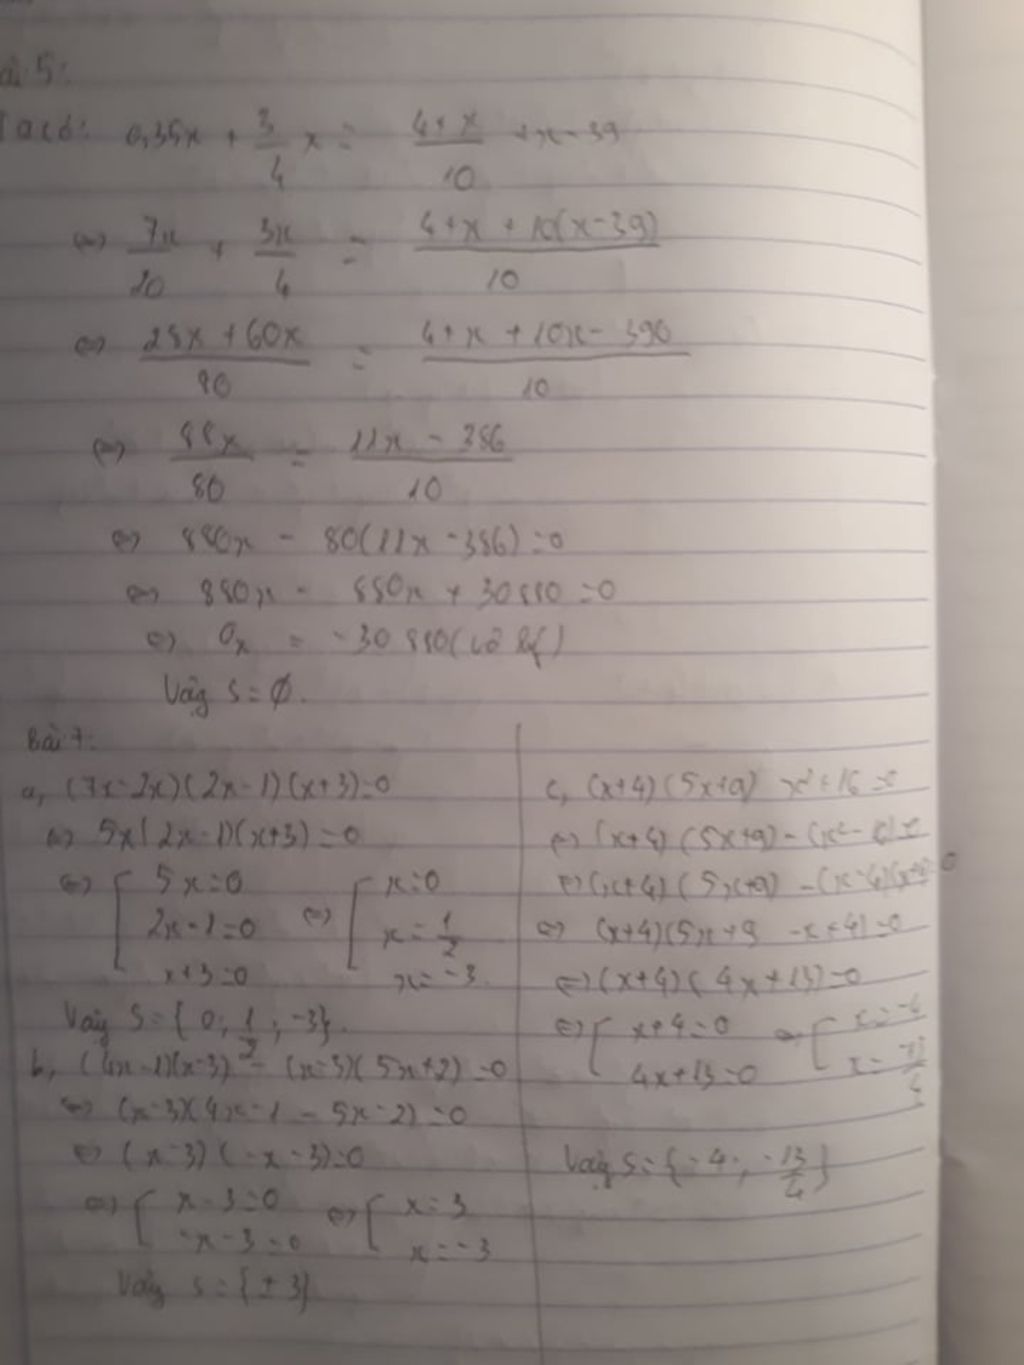 ài 5:
Ta có: 0,35x + 3/4 x = (4+x)/10 + x - 39
⇔ 7x/20 + 3x/4 = (4+x+10(x-39))/10
⇔ (28x+60x)/80 = (4+x+10x-390)/10
⇔ 88x/80 = (11x-386)/10
⇔ 880x - 80(11x-386)=0
⇔ 880x - 880x + 30880=0
⇔ 0x = -30880(vô lý)
Vậy S=∅.
Bài 7:
a, (7x-2x)(2x-1)(x+3)=0
⇔ 5x(2x-1)(x+3)=0
⇔ [ 5x=0 ⇔ [ x=0
2x-1=0 x=1/2
x+3=0 x=-3
Vậy S={0; 1/2; -3}.
b, (4x-1)(x-3) - (x-3)(5x+2)=0
⇔ (x-3)(4x-1-5x-2)=0
⇔ (x-3)(-x-3)=0
⇔ [ x-3=0 ⇔ [ x=3
-x-3=0 x=-3
Vậy S={±3}
c, (x+4)(5x+9) x²+16=0
⇔ (x+4)(5x+9)-(x²-16)=0
⇔ (x+4)(5x+9)-(x-4)(x+4)=0
⇔ (x+4)(5x+9-x+4)=0
⇔ (x+4)(4x+13)=0
⇔ [ x+4=0 ⇔ [ x=-4
4x+13=0 x=-13/4
Vậy S={-4; -13/4}